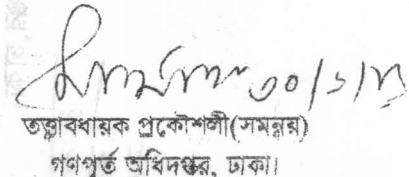 ৩০/১/
তত্ত্বাবধায়ক প্রকৌশলী(সমন্বয়)
গণপূর্ত অধিদপ্তর, ঢাকা।